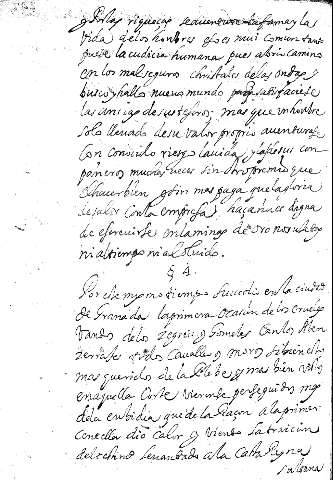 y Por las riqueças se aventura la fama y la
vida de los honbres esto es mui comun tanto
puede la cudicia humana pues abrio camino
en los mal seguros christales de las ondas y
busco y hallo nuevo mundo para satisfacerse
las ansias de sus tesoros; mas que un honbre
solo llevado de su valor proprio aventure
con conocido riesgo la vida y la de sus con
pañeros muchas veces sin otro premio que
el hacer bien y sin mas paga que la gloria
de salir con la empresa, haçaña es digna
de escrevirse en lamina de oro no sujeta
ni al tiempo ni al olvido.
§ 4.
Por este mismo tiempo sucedio en la ciudad
de Granada la primera ocasion de los crueles
vandos de los Zegries y Gomeles con los Aben
zerrajes todos Cavalleros moros si bien los
mas queridos de la Plebe y mas bien vistos
en aquella Corte vieronse perseguidos mas
de la enbidia que de la raçon a la primer
centella dio calor y viento la traicion
del echando levantado a la Casta Reyna
sultana